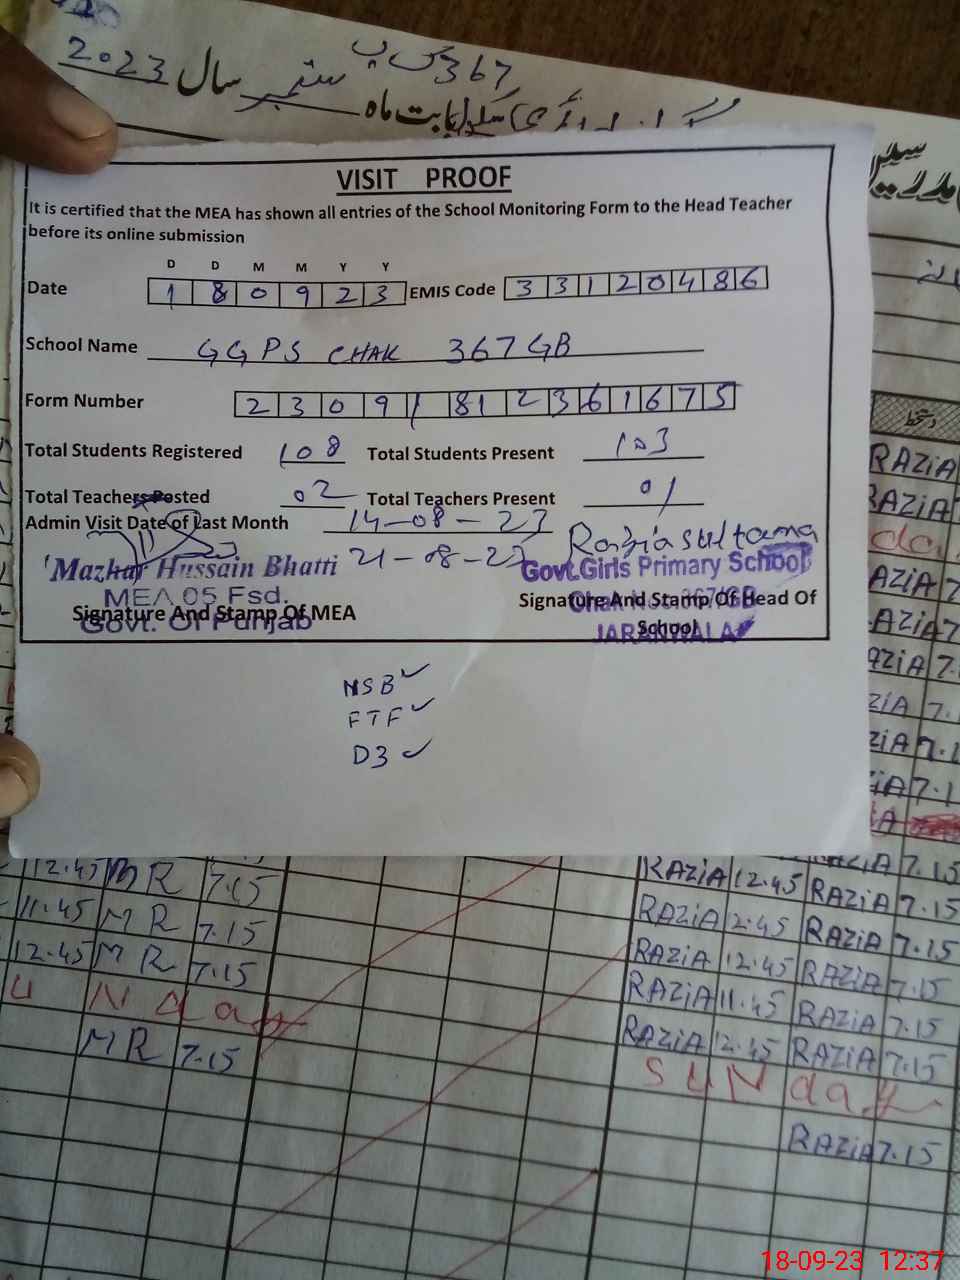 367 گ پ
بابت ماہ ستمبر سال 2023
VISIT PROOF
It is certified that the MEA has shown all entries of the School Monitoring Form to the Head Teacher
before its online submission
D D M M Y Y
Date 1 8 0 9 2 3 EMIS Code 3 3 1 2 0 4 8 6
School Name GGPS CHAK 367 GB
Form Number 2 3 0 9 1 81 2 3 6 1 6 7 5
Total Students Registered 108 Total Students Present 103
Total Teachers Posted 02 Total Teachers Present 01
Admin Visit Date of Last Month 14-08-23
21-08-23
Mazhar Hussain Bhatti
MEA 05 Fsd.
Govt. Of Punjab
Signature And Stamp Of MEA
Razia sultana
Govt.Girls Primary School
JARANWALA
Signature And Stamp Of Head Of
School
NSB ✓
FTF ✓
D3 ✓
دستخط
RAZIA
RAZIA 7
AZIA 7
AZIA 7
AZIA 7.
ZIA 7.
ZIA 7.1
IA 7.1
12.45 MR 7.15 RAZIA 12.45 RAZIA 7.15
11.45 MR 7.15 RAZIA 12.45 RAZIA 7.15
12.45 MR 7.15 RAZIA 12.45 RAZIA 7.15
RAZIA 11.45 RAZIA 7.15
u Nday
MR 7.15 RAZIA 12.45 RAZIA 7.15
SUNday
RAZIA 7.15
18-09-23 12:37